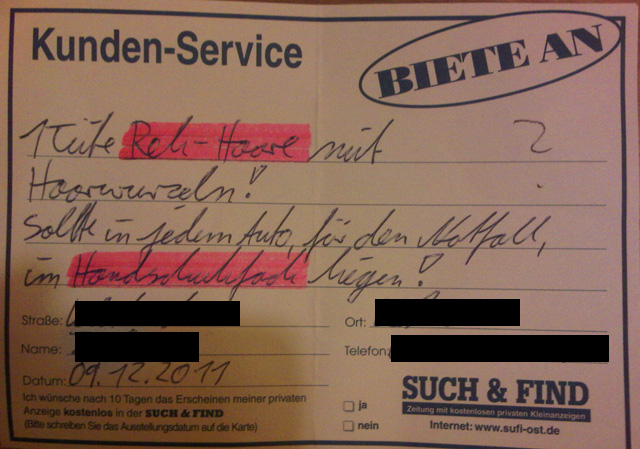 Kunden-Service
BIETE AN
1 Tüte Reh-Haare mit ?
Haarwurzeln!
Sollte in jedem Auto, für den Notfall,
im Handschuhfach liegen!
Straße:
Ort:
Name:
Telefon:
Datum: 09.12.2011
Ich wünsche nach 10 Tagen das Erscheinen meiner privaten
Anzeige kostenlos in der SUCH & FIND
(Bitte schreiben Sie das Ausstellungsdatum auf die Karte)
ja
nein
SUCH & FIND
Zeitung mit kostenlosen privaten Kleinanzeigen
Internet: www.sufi-ost.de